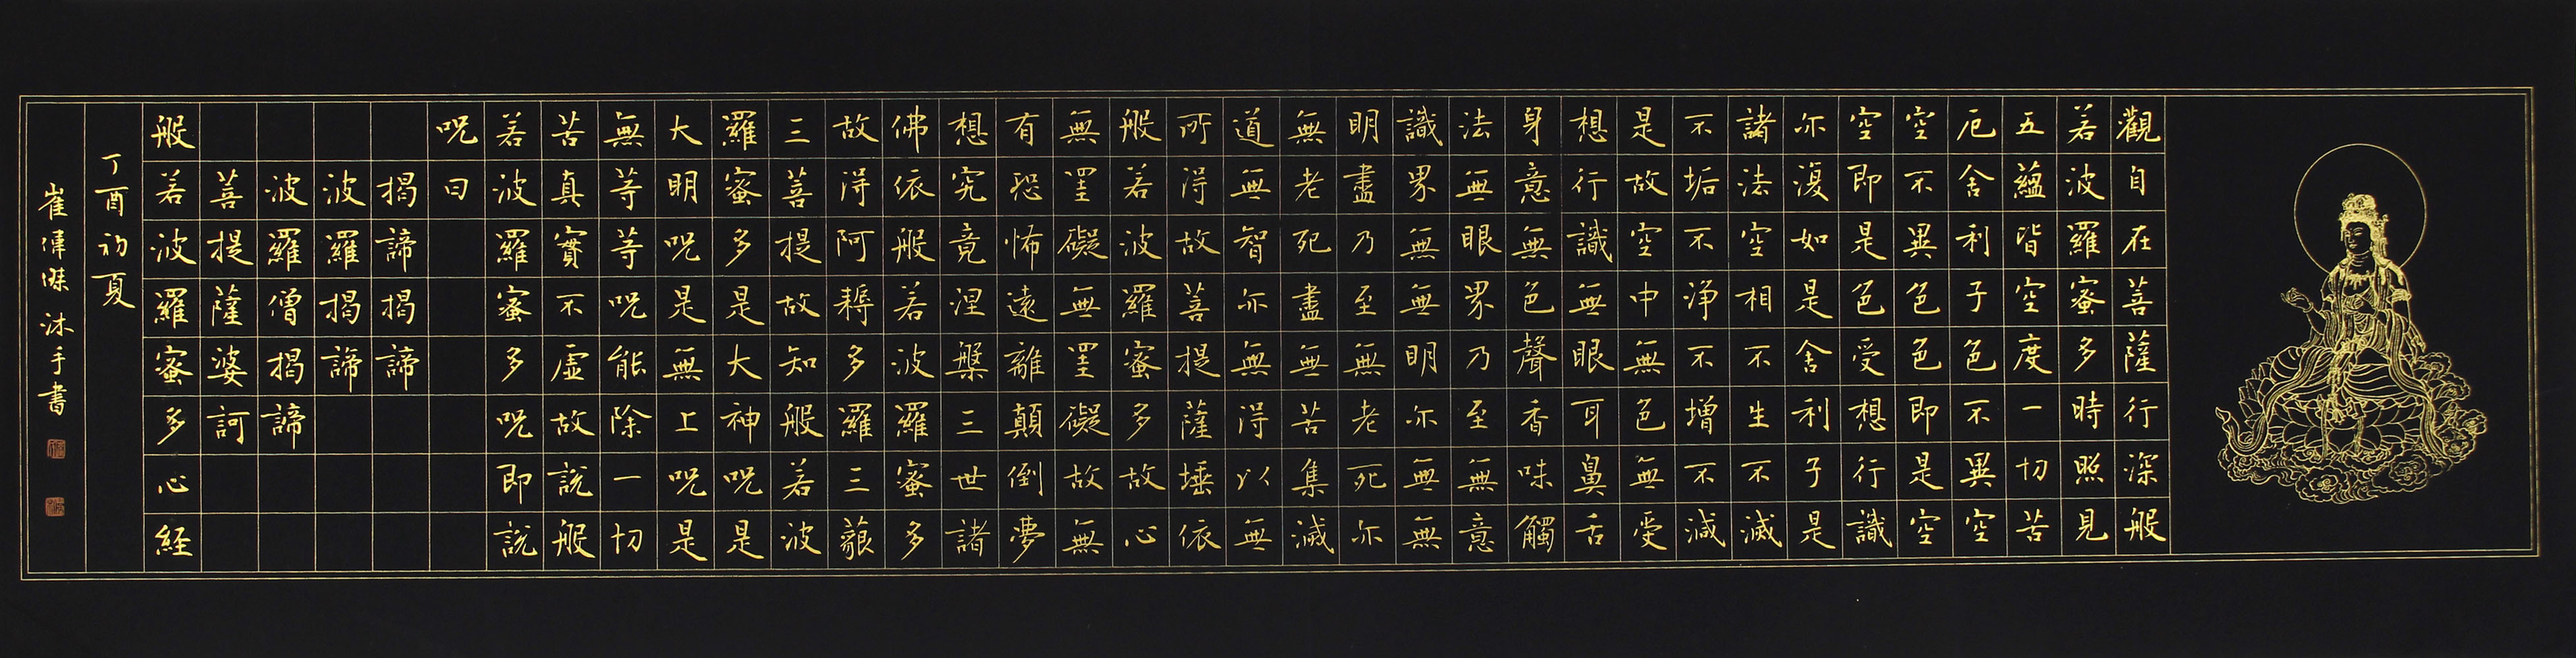 觀自在菩薩行深般
若波羅蜜多時照見
五蘊皆空度一切苦
厄舍利子色不異空
空不異色色即是空
空即是色受想行識
亦復如是舍利子是
諸法空相不生不滅
不垢不淨不增不減
是故空中無色無受
想行識無眼耳鼻舌
身意無色聲香味觸
法無眼界乃至無意
識界無無明亦無無
明盡乃至無老死亦
無老死盡無苦集滅
道無智亦無得以無
所得故菩提薩埵依
般若波羅蜜多故心
無罣礙無罣礙故無
有恐怖遠離顛倒夢
想究竟涅槃三世諸
佛依般若波羅蜜多
故得阿耨多羅三藐
三菩提故知般若波
羅蜜多是大神呪是
大明呪是無上呪是
無等等呪能除一切
苦真實不虛故說般
若波羅蜜多呪即說
呪曰
揭諦揭諦
波羅揭諦
波羅僧揭諦
菩提薩婆訶
般若波羅蜜多心経
丁酉初夏
崔偉 沐手書